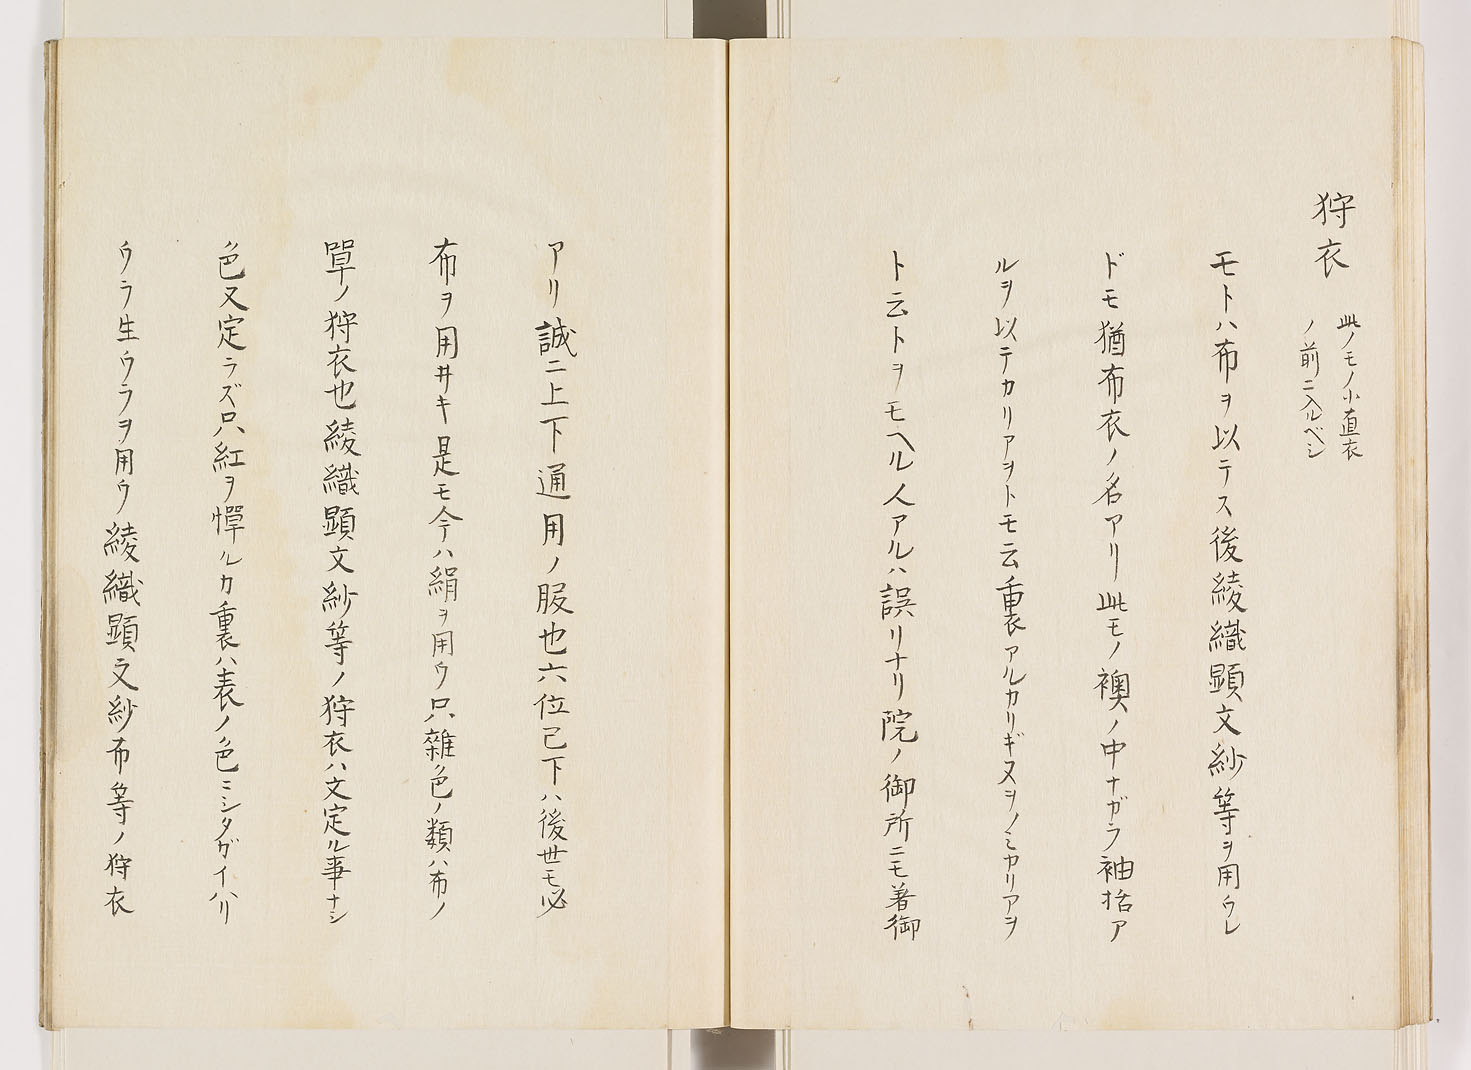 狩衣
此ノモノ小直衣
ノ前ニ入ルベシ
モトハ布ヲ以テス後綾織顕文紗等ヲ用ウレ
ドモ猶布衣ノ名アリ此モノ襖ノ中ナガラ袖括ア
ルヲ以テカリアヲトモ云重裏アルカリギヌヲノミカリアヲ
ト云トヲモヘル人アルハ誤リナリ院ノ御所ニモ着御
アリ誠ニ上下通用ノ服也六位已下ハ後世モ必
布ヲ用井キ是モ今ハ絹ヲ用ウ只雜色ノ類ハ布ノ
単ノ狩衣也綾織顕文紗等ノ狩衣ハ文定ル事ナシ
色又定ラズ只紅ヲ憚ルカ重裏ハ表ノ色ニシタガイハリ
ウラ生ウラヲ用ウ綾織顕文紗布等ノ狩衣